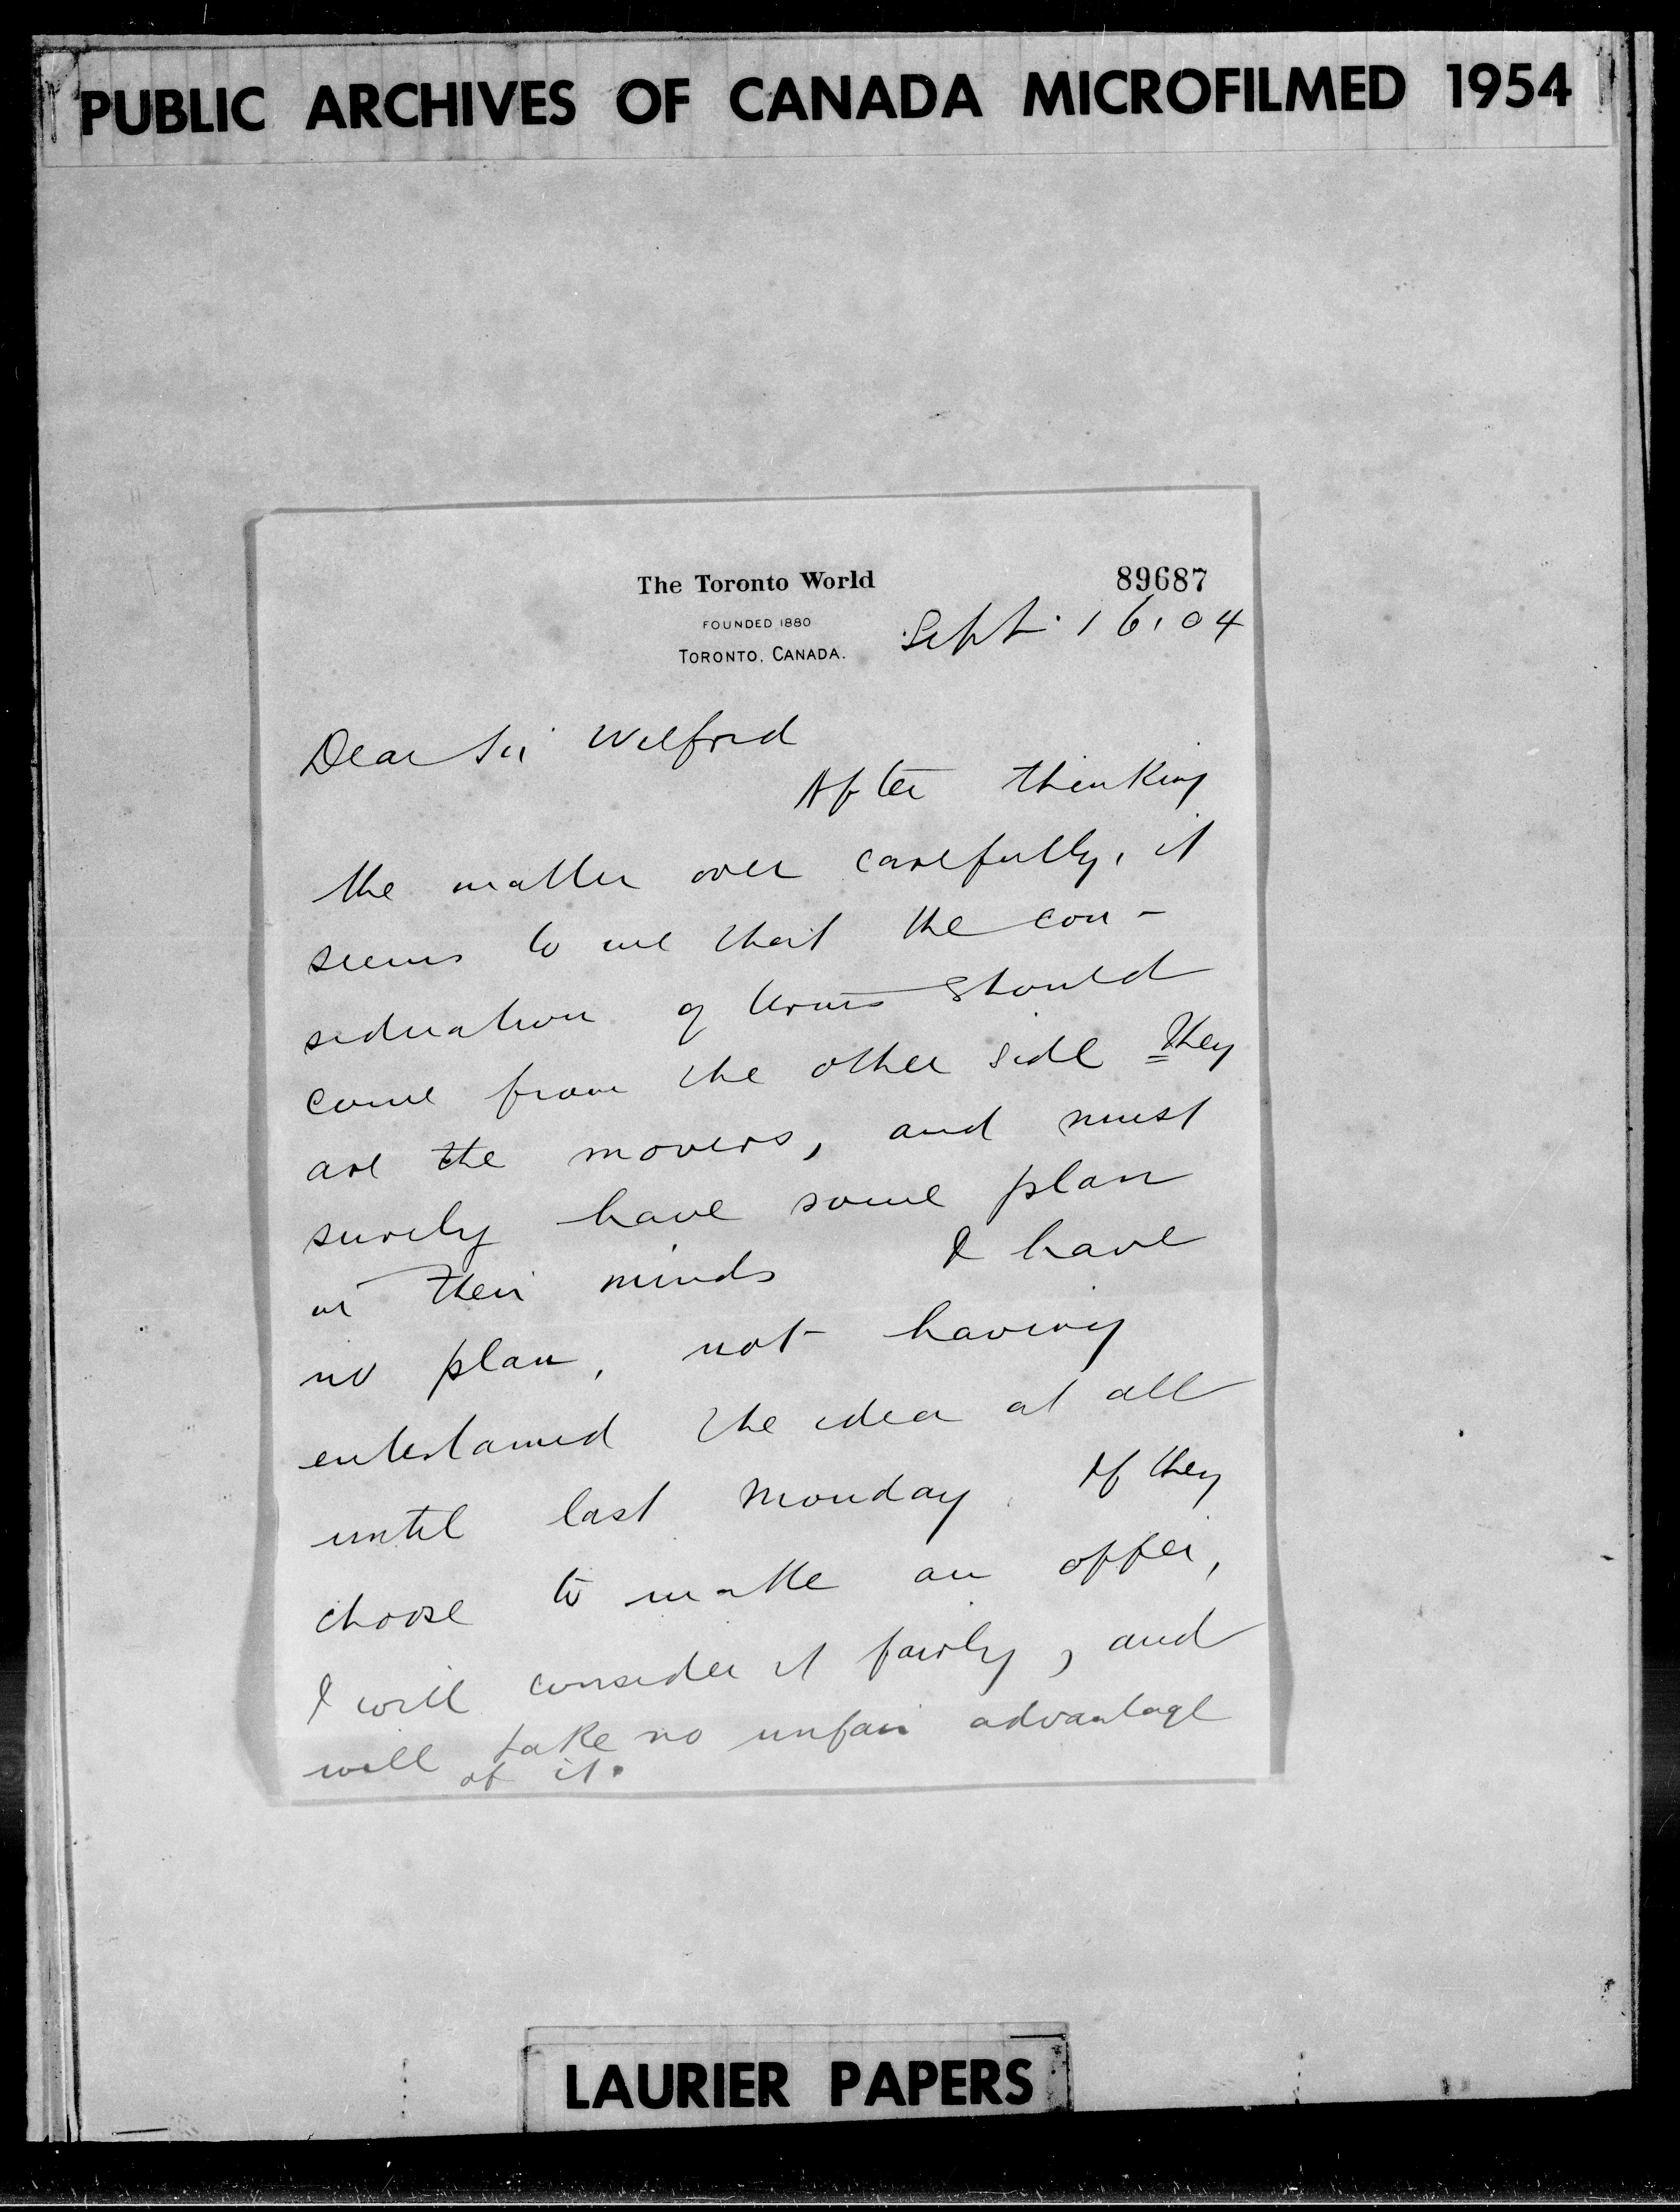 PUBLIC ARCHIVES OF CANADA MICROFILMED 1954
The Toronto World
89687
FOUNDED 1880
TORONTO, CANADA.
Sept. 16. 04
Dear Sir Wilfrid
After thinking
the matter over carefully, it
seems to me that the con-
sideration of terms should
come from the other side They
are the movers, and must
surely have some plan
in their minds I have
no plan, not having
entertained the idea at all
until last Monday. If they
choose to make an offer,
I will consider it fairly, and
will take no unfair advantage
of it.
LAURIER PAPERS